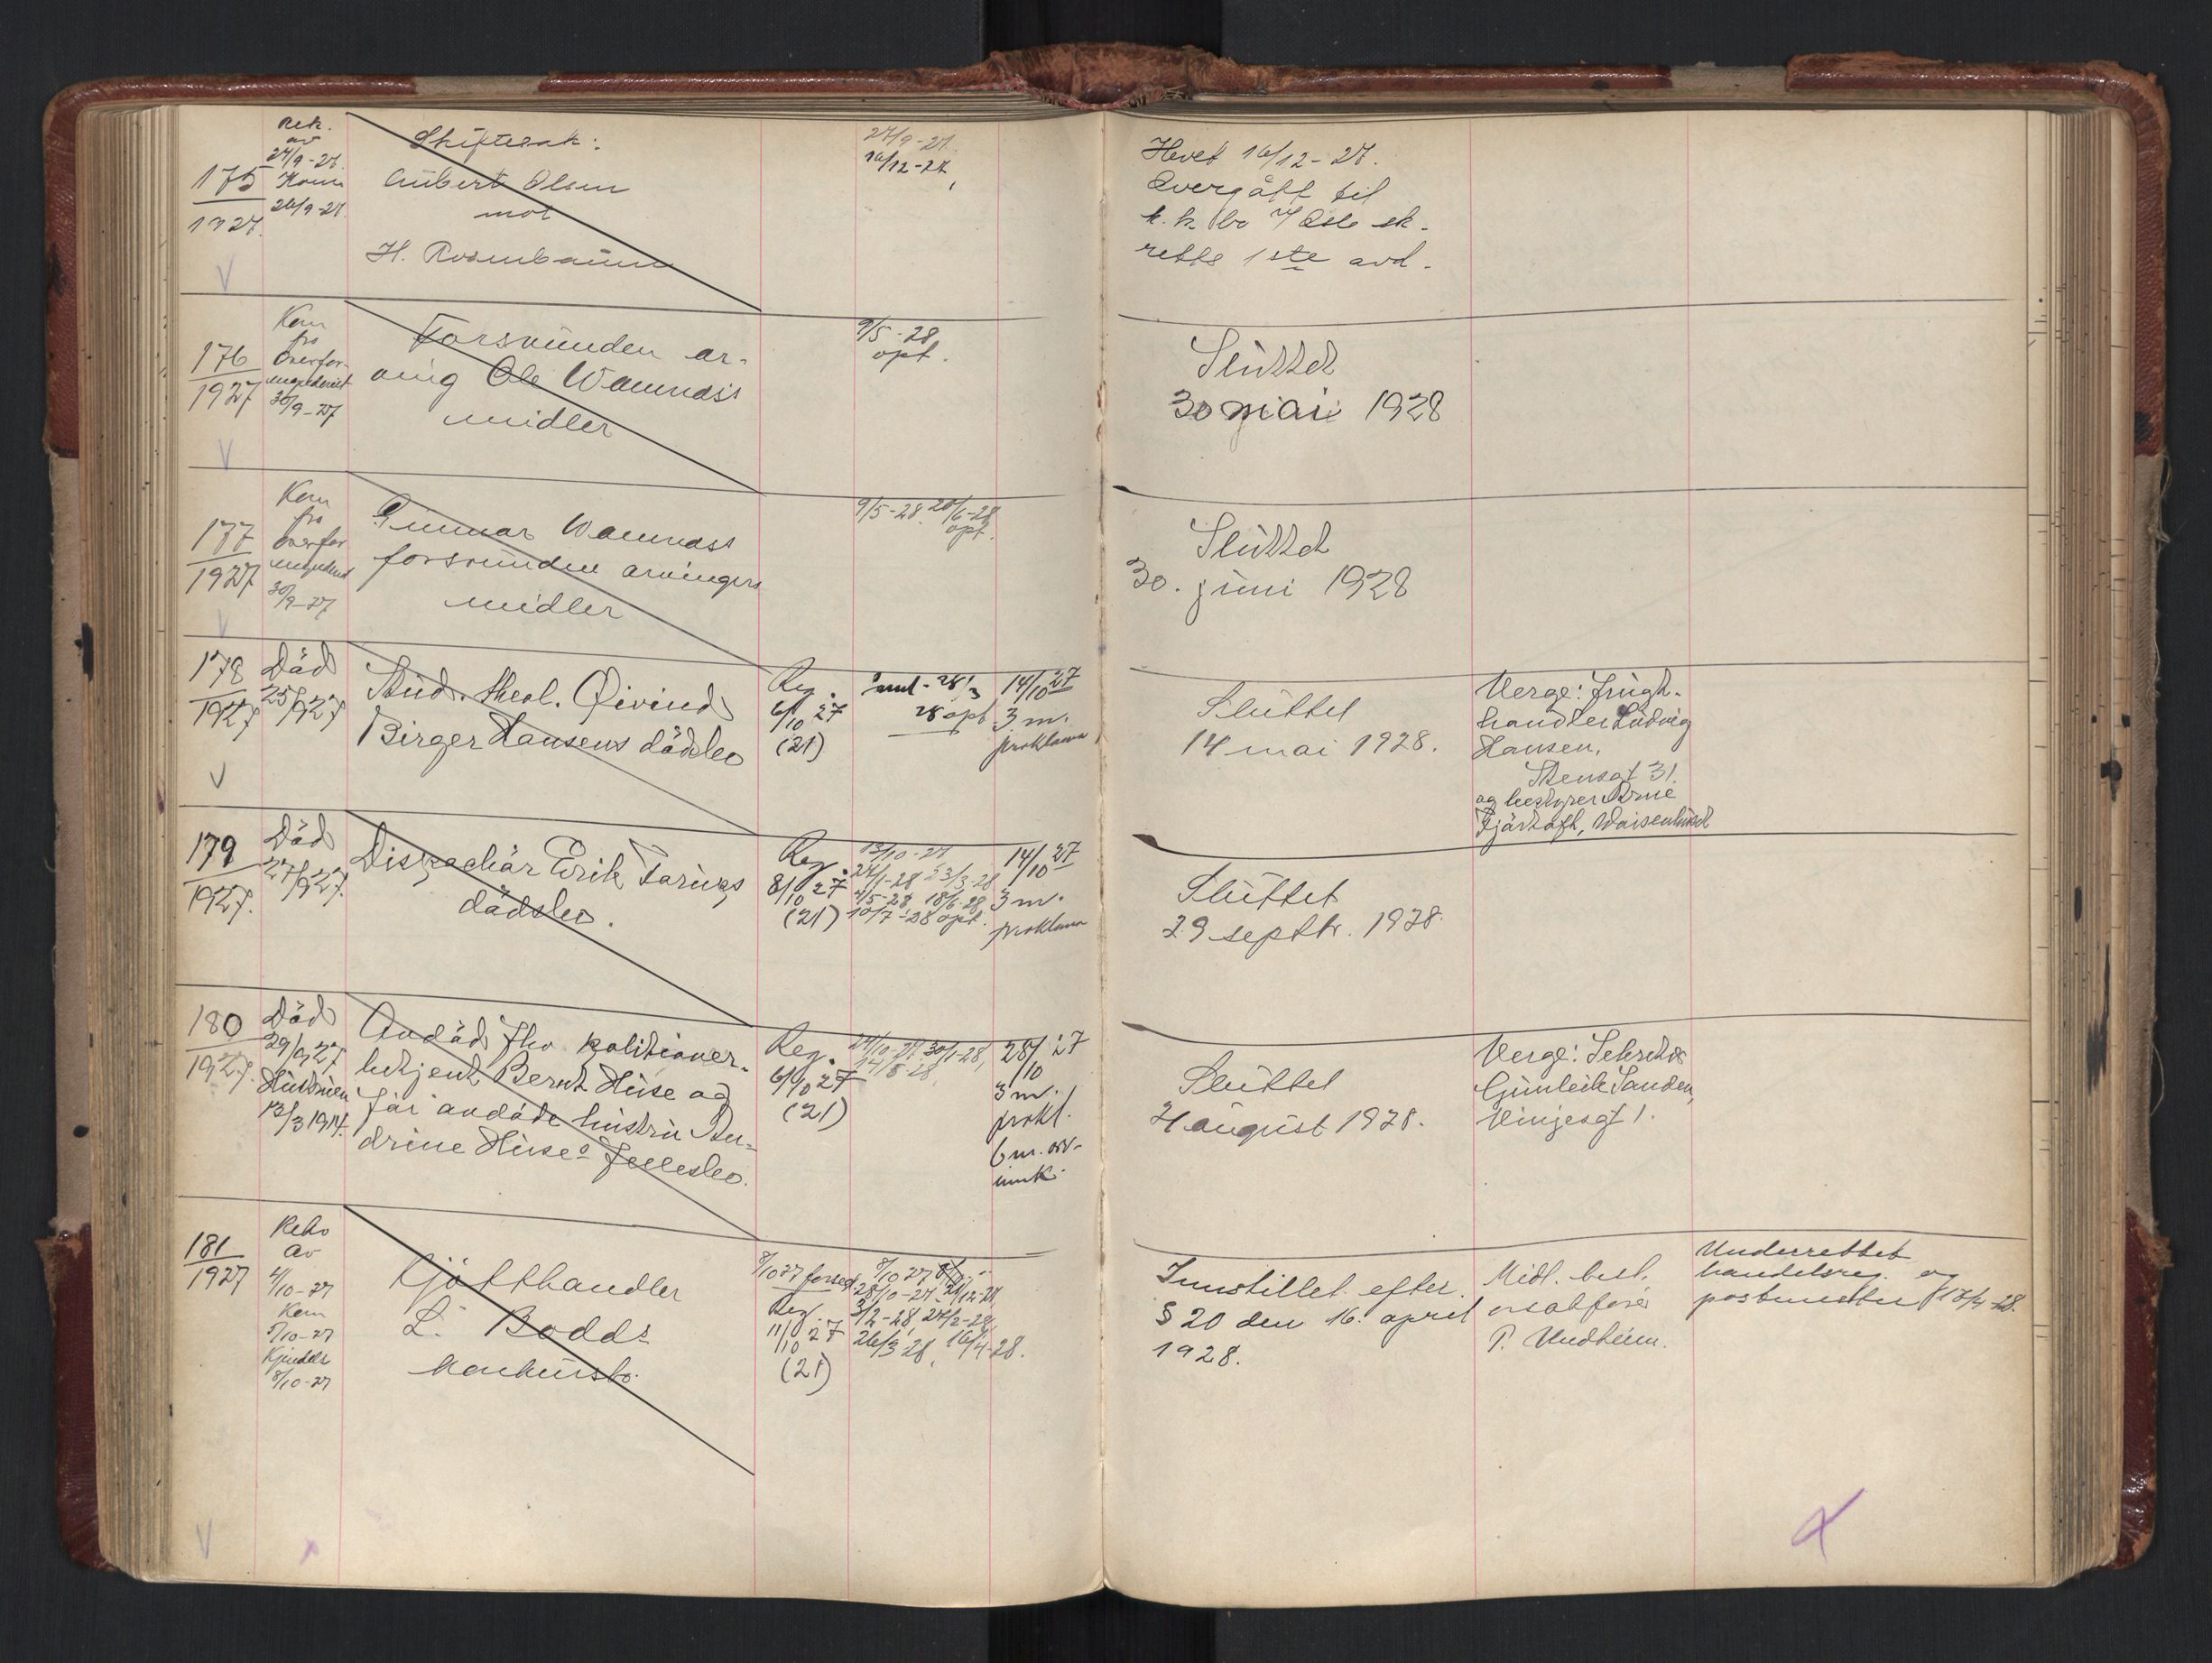 175
1927.
Rek.
av
24/9-27.
Kom
26/9-27.
Skiftesak:
Hubert Olsen
mot
H. Rosenbaum
27/9-27.
16/12-27,
Hevet 16/12-27.
Overgått til
k. k. bo v/ Oslo sk.
retts 1ste avd.
176
1927
Kom
fra
Overfor-
30/9-27
Forsvunden ar-
ving Ole Wamnass
midler
9/5-28
opt.
Sluttet
30 mai 1928
177
1927
Kom
fra
Overfor
30/9-27
Gunnar Wamnass
forsvunden arvingers
midler
9/5-28. 20/6-28
opt.
Sluttet
30. juni 1928
178
1927
Död
25/9 27
Stud. theol. Øivind
Birger Hansens dödsbo
Reg.
6/10 27
(21)
28 opt.
14/10 27
3 m.
proklama
Sluttet
14 mai 1928.
Verge: frugt-
handler Ludvig
Hansen,
Stensgt 31.
og bestyrer Arne
Fjörtoft, Waisenhuset
179
1927.
Död
27/9 27.
Dispachör Erik Tarups
dödsbo.
Reg.
8/10 27
(21)
13/10-27
24/1-28 23/3-28
4/5-28, 18/6-28,
10/7-28 opt.
14/10 27
3 m.
proklama
Sluttet
29 septbr. 1928.
180
1927.
Död
29/9 27
Hustruen
12/3 1914.
Avdöd fhv. politiover-
betjent Bernt Huse og
för avdöde hustru An-
drine Huses fellesbo.
Reg.
6/10 27
(21)
30/1-28,
28/10 27
3 m.
prokl.
6 m. arv-
innk.
Sluttet
4 august 1928.
Verge: Sekretær
Gunleik Tanden,
Vinjesgt 1.
181
1927
Rekv
av
4/10-27
Kom
5/10-27
Kjendels
8/10-27
Kjötthandler
L. Bodds
konkursbo.
8/10 27 forsegl
Reg.
11/10 27
(21)
8/10 27,
28/10-27, 21/12-27,
3/2-28, 24/2-28,
26/3 28, 16/4-28.
Innstillet efter
§ 20 den 16. april
1928.
Midl. best.
o.r.sakfører
P. Undheim.
Underrettet
handelsreg. og
postmester 17/4-28.